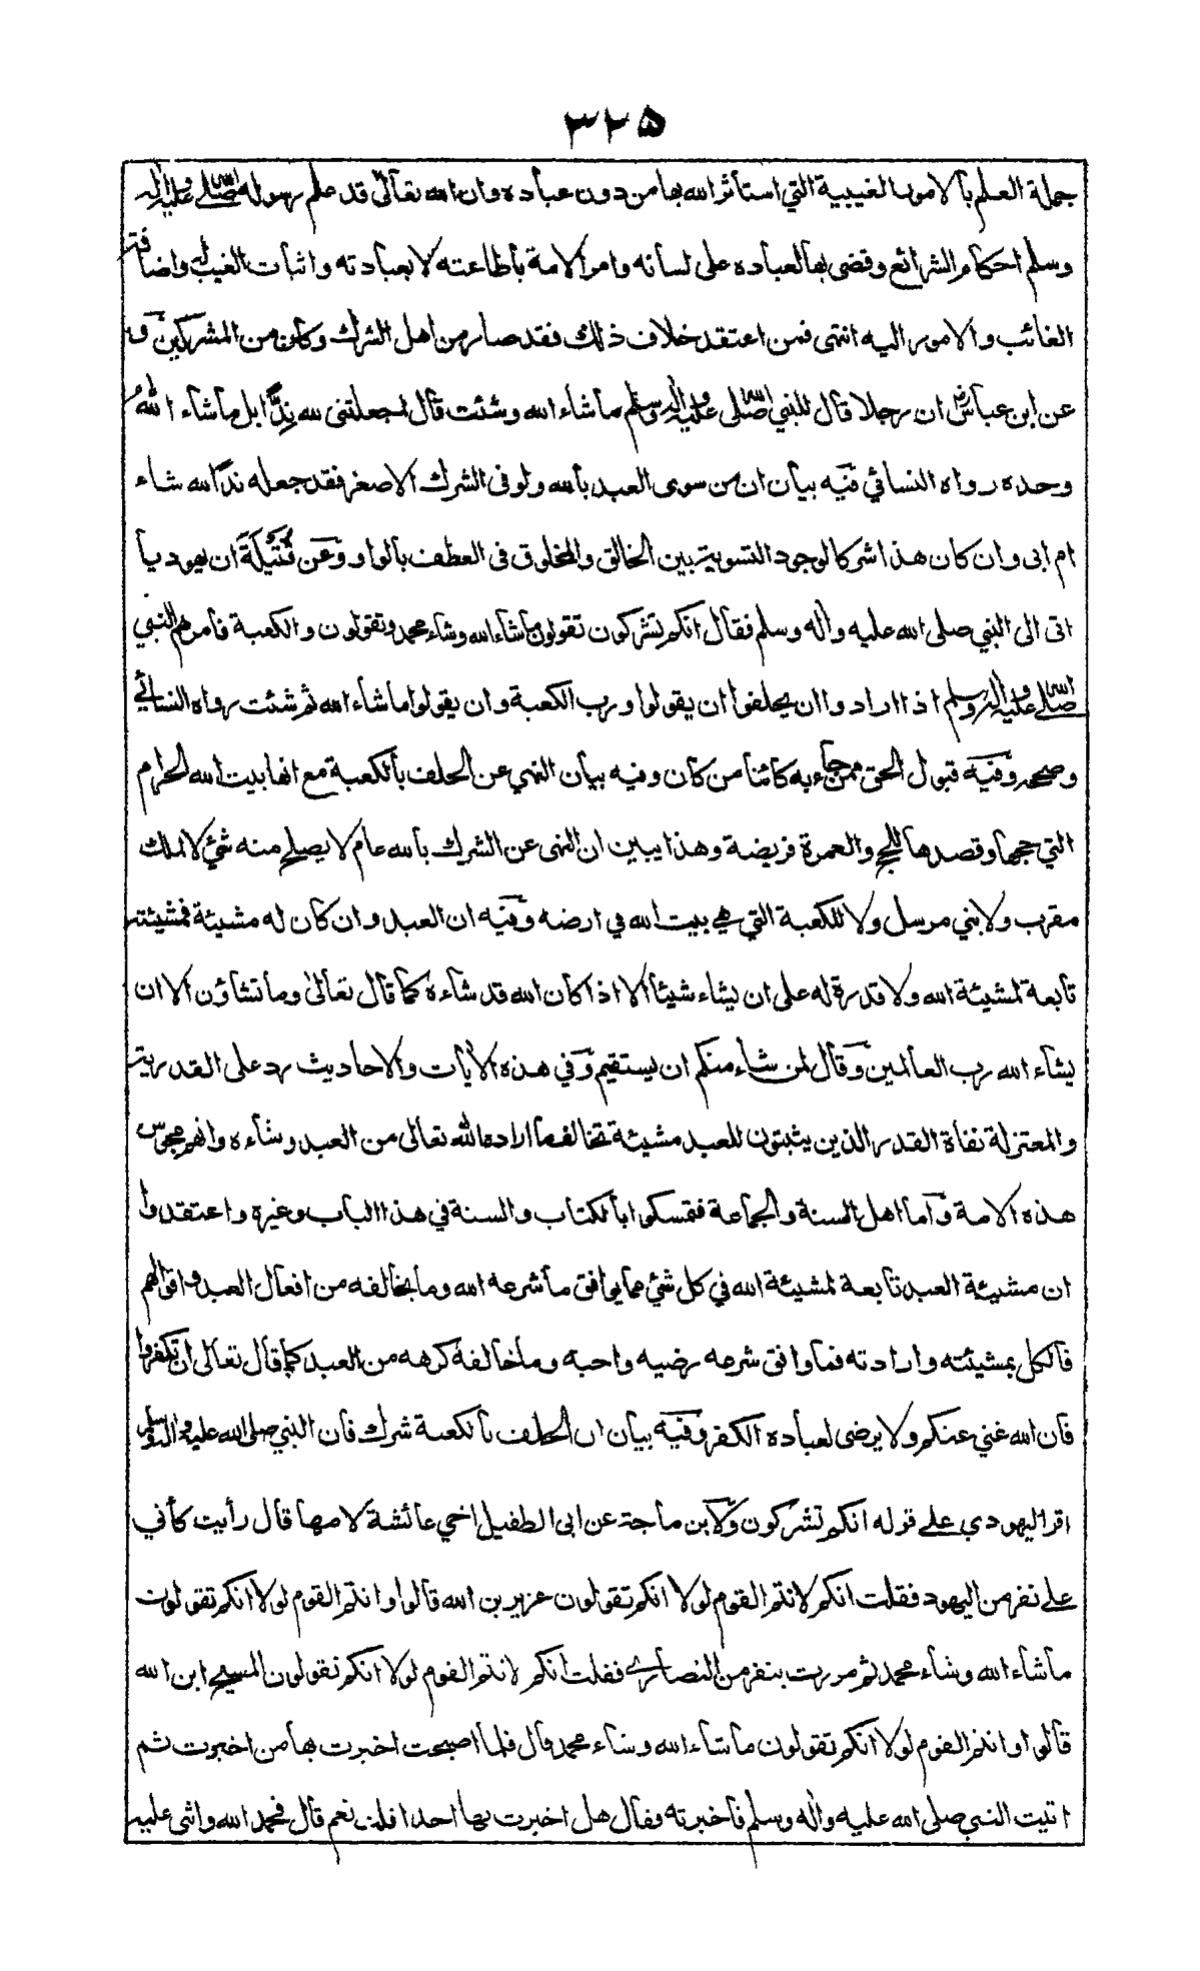 ٣٢٥
جملة العلم بالامور الغيبية التي استأثر الله بها من دون عباده وان الله تعالى قد علم رسوله صلى الله عليه واله
وسلم احكام الشرائع وقضى بها لعباده على لسانه وامر الامة بأطاعته لا بعبادته واثبات الغيب له واضافة
الغائب والامور اليه انتهى فمن اعتقد خلاف ذلك فقد صار من اهل الشرك وكان من المشركين و
عن ابن عباس رض ان رجلا قال للنبي صلى الله عليه واله وسلم ما شاء الله وشئت قال اجعلتنى لله نِدًّا بل ما شاء اللهُ
وحده رواه النسائي فيه بيان ان من سوى العبد بالله ولو فى الشرك الاصغر فقد جعله ندا لله شاء
ام ابى وان كان هذا شركا لوجود التسوية بين الخالق والمخلوق فى العطف بالواو وعن قُتَيْلَةَ ان يهوديا
اتى الى النبي صلى الله عليه واله وسلم فقال انكم تشركون تقولون ما شاء الله وشاء محمد وتقولون والكعبة فأمرهم النبي
صلى الله عليه واله وسلم اذا ارادوا ان يحلفوا ان يقولوا ورب الكعبة وان يقولوا ما شاء الله ثم شئت رواه النسائي
وصححه وفيه قبول الحق ممن جاء به كائنا من كان وفيه بيان النهي عن الحلف بالكعبة مع انها بيت الله الحرام
التي حجها وقصدها للحج والعمرة فريضة وهذا يبين ان النهى عن الشرك بالله عام لا يصلح منه شئ لا لملك
مقرب ولا نبي مرسل ولا للكعبة التي هي بيت الله في ارضه وفيه ان العبد وان كان له مشيئة فمشيئته
تابعة لمشيئة الله ولا قدرة له على ان يشاء شيئا الا اذا كان الله قد شاءه كما قال تعالىٰ وما تشاؤن الا ان
يشاء الله رب العالمين وقال لمن شاء منكم ان يستقيم وفي هذه الآيات والاحاديث رد على القدرية
والمعتزلة نفاة القدر الذين يثبتون للعبد مشيئة تخالف ما اراده الله تعالى من العبد وشاءه وانهم مجوس
هذه الامة واما اهل السنة والجماعة فتمسكوا بالكتاب والسنة في هذا الباب وغيره واعتقدوا
ان مشيئة العبد تابعة لمشيئة الله في كل شئ مما يوافق ما شرعه الله وما يخالفه من افعال العبد واقوالهم
فالكل بمشيئته وارادته فما وافق شرعه رضيه واحبه وما خالفه كرهه من العبد كما قال تعالى ان تكفروا
فان الله غني عنكم ولا يرضى لعباده الكفر وفيه بيان ان الحلف بالكعبة شرك فان النبي صلى الله عليه واله وسلم
اقر اليهودي على قوله انكم تشركون ولابن ماجة عن ابى الطفيل اخي عائشة لامها قال رأيت كأني
على نفر من اليهود فقلت انكم لانتم القوم لولا انكم تقولون عزير بن الله قالوا وانتم القوم لولا انكم تقولون
ما شاء الله وشاء محمد ثم مررت بنفر من النصارى فقلت انكم لانتم القوم لولا انكم تقولون المسيح ابن الله
قالوا وانتم القوم لولا انكم تقولون ما شاء الله وشاء محمد قال فلما اصبحت اخبرت بها من اخبرت ثم
اتيت النبي صلى الله عليه واله وسلم فأخبرته فقال هل اخبرت بها احدا قلت نعم قال فحمد الله واثنى عليه